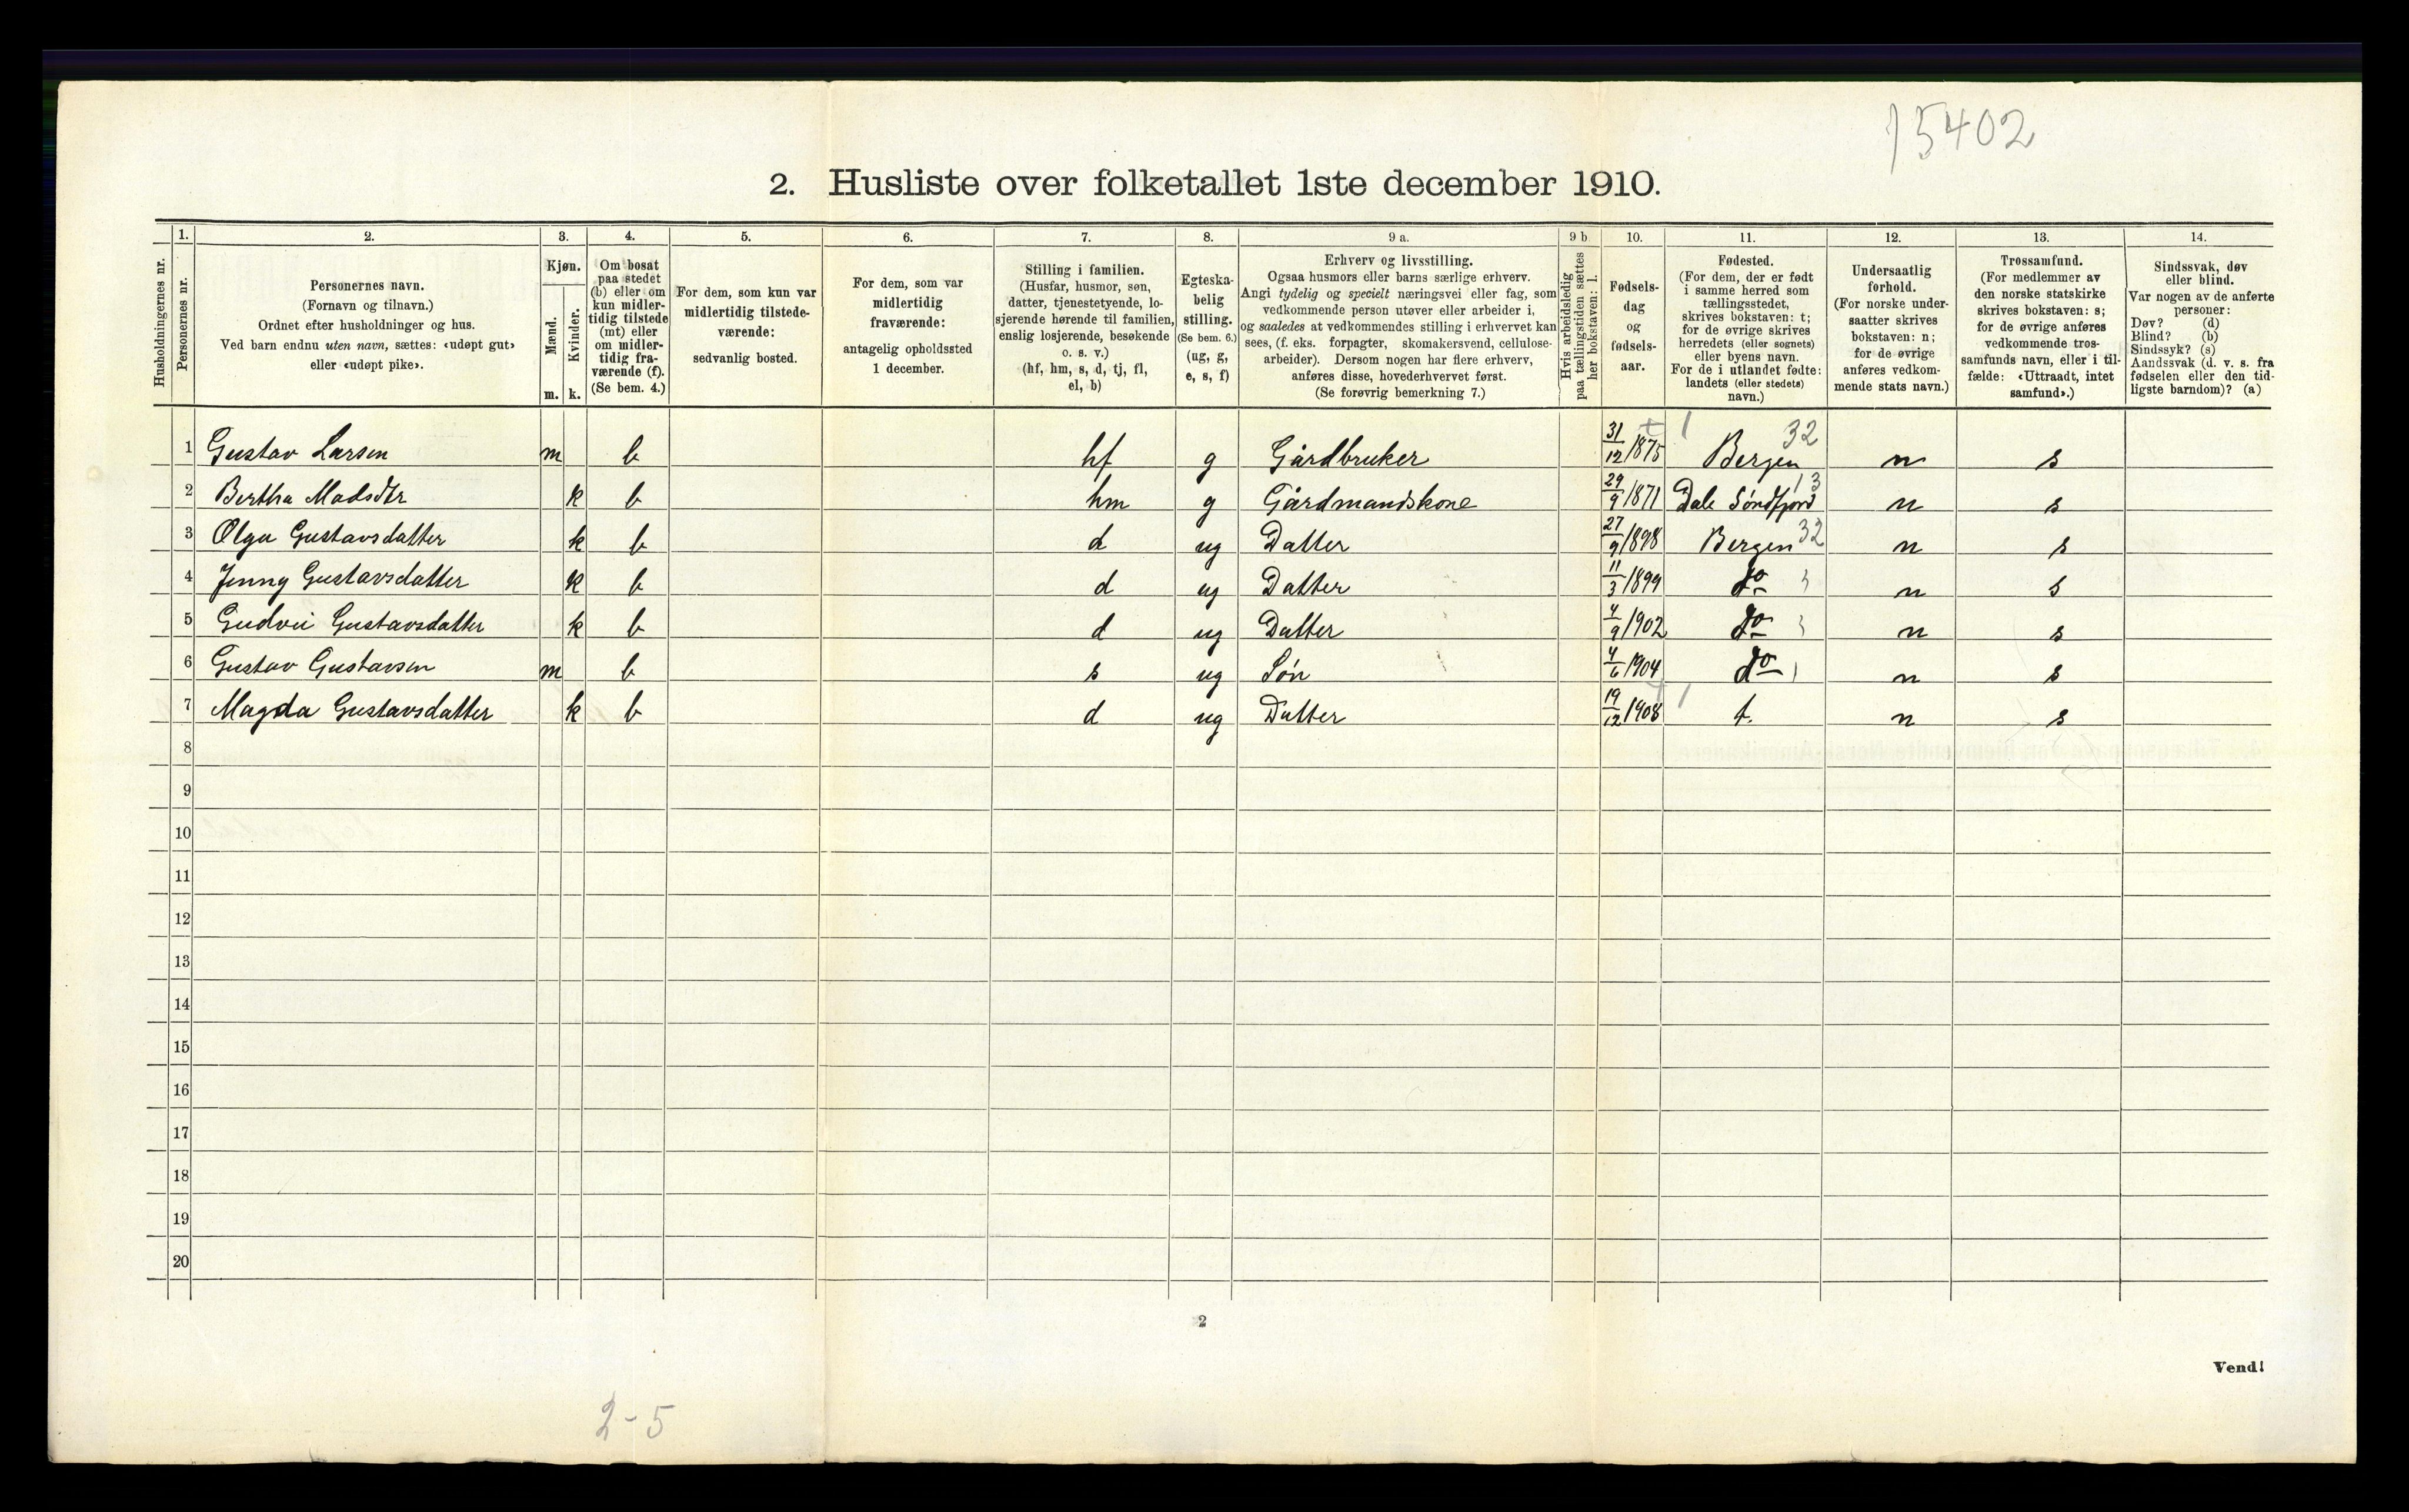 15402
2. Husliste over folketallet 1ste december 1910.
Husholdningernes nr.
1. Personernes nr.
2. Personernes navn.
(Fornavn og tilnavn.)
Ordnet efter husholdninger og hus.
Ved barn endnu uten navn, sættes: «udøpt gut»
eller «udøpt pike».
3. Kjøn.
Mænd. m.
Kvinder. k.
4. Om bosat
paa stedet
(b) eller om
kun midler-
tidig tilstede
(mt) eller
om midler-
tidig fra-
værende (f).
(Se bem. 4.)
5. For dem, som kun var
midlertidig tilstede-
værende:
sedvanlig bosted.
6. For dem, som var
midlertidig
fraværende:
antagelig opholdssted
1 december.
7. Stilling i familien.
(Husfar, husmor, søn,
datter, tjenestetyende, lo-
sjerende hørende til familien,
enslig losjerende, besøkende
o. s. v.)
(hf, hm, s, d, tj, fl,
el, b)
8. Egteska-
belig
stilling.
(Se bem. 6.)
(ug, g,
e, s, f)
9 a. Erhverv og livsstilling.
Ogsaa husmors eller barns særlige erhverv.
Angi tydelig og specielt næringsvei eller fag, som
vedkommende person utøver eller arbeider i,
og saaledes at vedkommendes stilling i erhvervet kan
sees, (f. eks. forpagter, skomakersvend, cellulose-
arbeider). Dersom nogen har flere erhverv,
anføres disse, hovederhvervet først.
(Se forøvrig bemerkning 7.)
9 b Hvis arbeidsledig
paa tællingstiden sættes
her bokstaven: l.
10. Fødsels-
dag
og
fødsels-
aar.
11. Fødested.
(For dem, der er født
i samme herred som
tællingsstedet,
skrives bokstaven: t;
for de øvrige skrives
herredets (eller sognets)
eller byens navn.
For de i utlandet fødte:
landets (eller stedets)
navn.)
12. Undersaatlig
forhold.
(For norske under-
saatter skrives
bokstaven: n;
for de øvrige
anføres vedkom-
mende stats navn.)
13. Trossamfund.
(For medlemmer av
den norske statskirke
skrives bokstaven: s;
for de øvrige anføres
vedkommende tros-
samfunds navn, eller i til-
fælde: «Uttraadt, intet
samfund».)
14. Sindssvak, døv
eller blind.
Var nogen av de anførte
personer:
Døv? (d)
Blind? (b)
Sindssyk? (s)
Aandssvak (d. v. s. fra
fødselen eller den tid-
ligste barndom)? (a)
1 Gustav Larsen m b hf g Gårdbruker 31/12 1875 Bergen 32 n s
2 Bertha Madsdtr k b hm g Gårdmandskone 29/9 1871 Dale Søndfjord 13 n s
3 Olga Gustavsdatter k b d ug Datter 27/9 1898 Bergen 32 n s
4 Jenny Gustavsdatter k b d ug Datter 11/3 1899 do n s
5 Gudvei Gustavsdatter k b d ug Datter 4/9 1902 do n s
6 Gustav Gustavsen m b s ug Søn 4/6 1904 do n s
7 Magda Gustavsdatter k b d ug Datter 19/12 1908 t. n s
8
9
10
11
12
13
14
15
16
17
18
19
20
2
Vend!
2-5